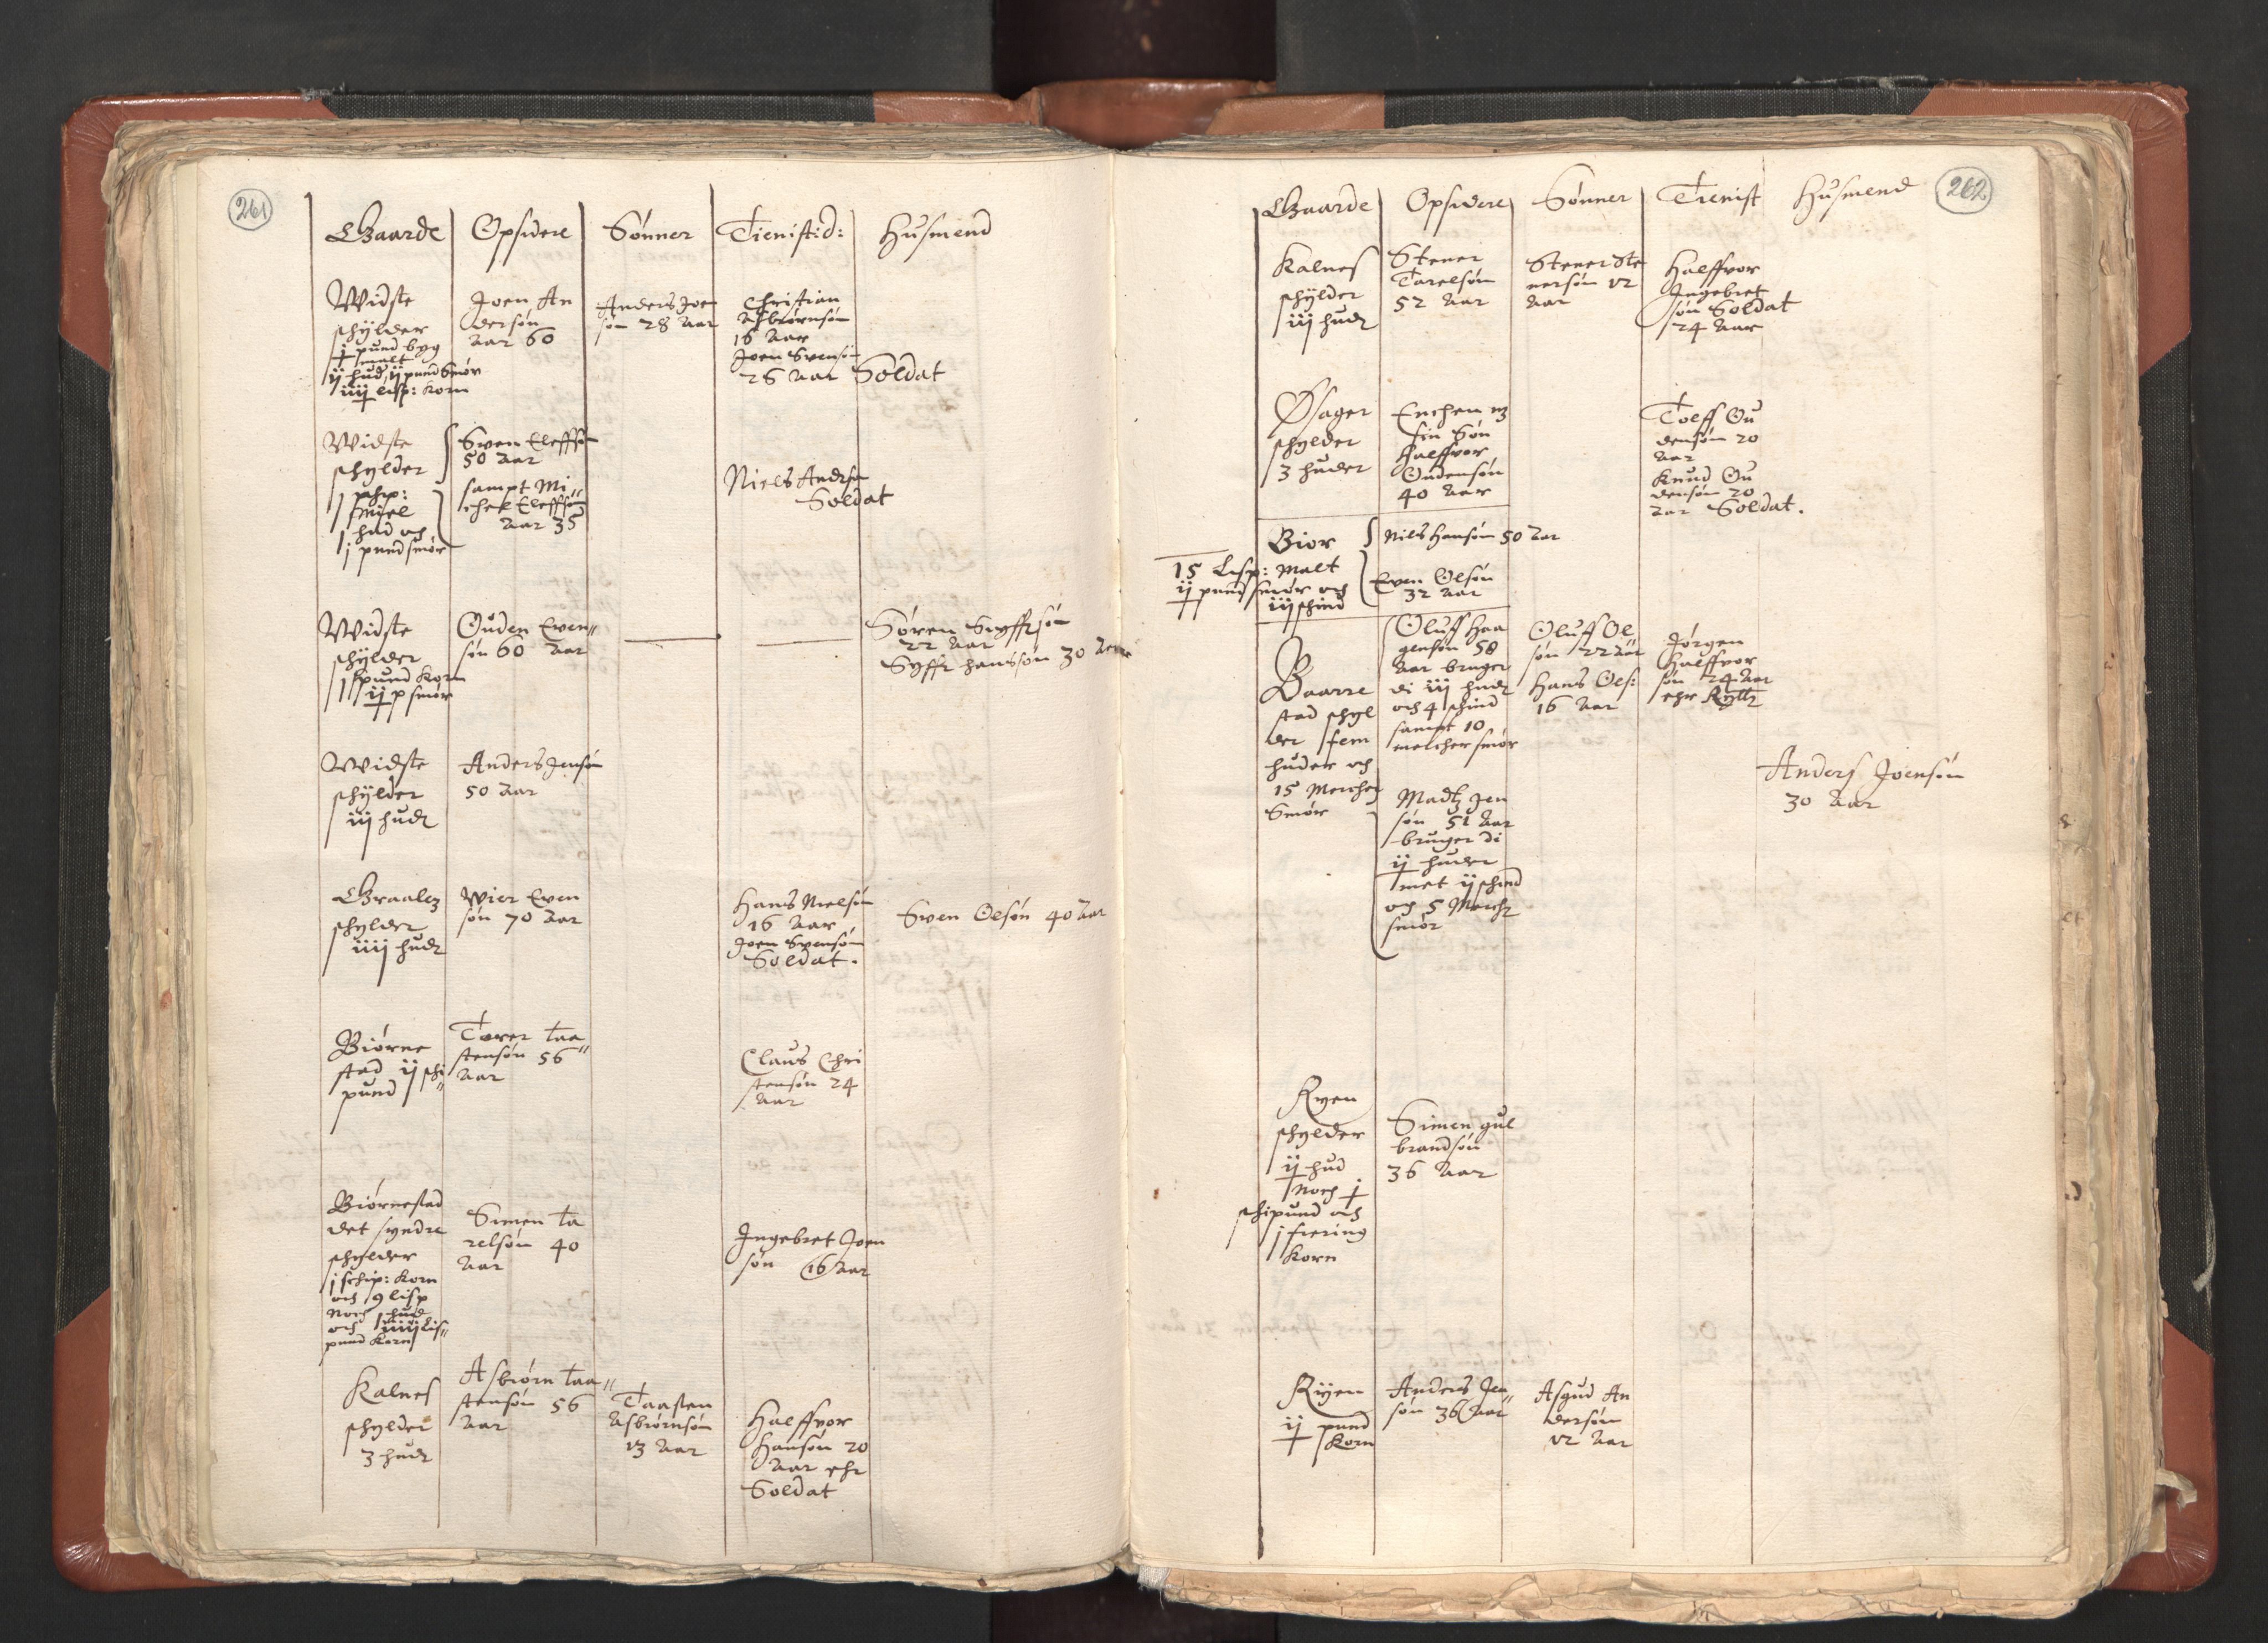 261
Gaarde Opsidere Sønner Tienistid: Husmend
Widste
schÿlder
j pund byg
malt
ij hud, ij pund Smør
iiij lisp: Korn
Joen An
dersøn
Aar 60
Anders Joen
søn 28 Aar
Christian
Asbiørnsøn
16 Aar
Joen Svensøn
26 Aar Soldat
Widste
schylder
j schp:
miel
1 hud och
j pund smør
Swen Eleffsøn
50 Aar
sampt Mi"
chel Eleffsøn
Aar 35
Niels Andrsøn
Soldat
Widste
schÿlder
j pund Korn
ij p smør
Ouden Even"
søn 60 Aar
Søren Syffrsøn
22 Aar
Syffr hanssøn 30 Aar
Widste
schÿlder
iij hudr
Anders Jensøn
50 Aar
Graalez
schylder
iiij hudr
Wier Even
søn 70 Aar
Hans Nielsøn
16 Aar
Joen Svensøn
Soldat.
Swen Olsøn 40 Aar
Biørne
stad ij schi"
pund
Torer taa"
stensøn 56
Aar
Claus Chri
stensøn 24
Aar
Biørnestad
det syndre
schylder
j schip: Korn
och 9 lisp
Noch 1 hud
och iiij Lis"
pund Korn
Simen ta
relsøn 40
Aar
Ingebret Joen
søn 16 Aar
Kalnes
schylder
3 hudr
Asbiørn taa"
stensøn 56
Aar
Taasten
Asbiørnsøn
13 Aar
Halffvor
Hansøn 20
Aar ehr
Soldat
262
Gaarde Opsidere Sønner Tienist Husmend
Kalnes
schÿlder
iij hudr
Stener
Tarelsøn
52 Aar
Stener Ste
nersøn 12
Aar
Halffvor
Ingebret
søn Soldat
24 Aar
Øsager
schylder
3 huder
Enchen mz
sin Søn
Halffvor
Oudensøn
40 Aar
Toeff Ou
densøn 20
Aar
Knud Ou
densøn 20
Aar Soldat.
Bior
15 Lisp: Malt
ij pund smør och
iij schind
Nils Hansøn 50 Aar
Even Olsøn
32 Aar
Baarre
stad schyl
der fem
huder och
15 Mercher
Smør
Oluff Haa
gensøn 58
Aar bruger
di iij hudr
och 4 schind
sampt 10
melcher smør
Oluff Ol
søn 22 Aar
Hans Ols:
16 Aar
Jørgen
Halffvor
søn 24 Aar
ehr Rytter
Madtz Jen
søn 51 Aar
bruger di
ij huder
met ij schind
och 5 Merchr
smør
Anders Joensøn
30 Aar
Ryen
schylder
ij hud
Noch j
schipund och
j fiering
Korn
Simen gul
brandsøn
36 Aar
Rÿen
ij pund
Korn
Anders Jen"
søn 36 Aar
Asgud An
dersøn
12 Aar